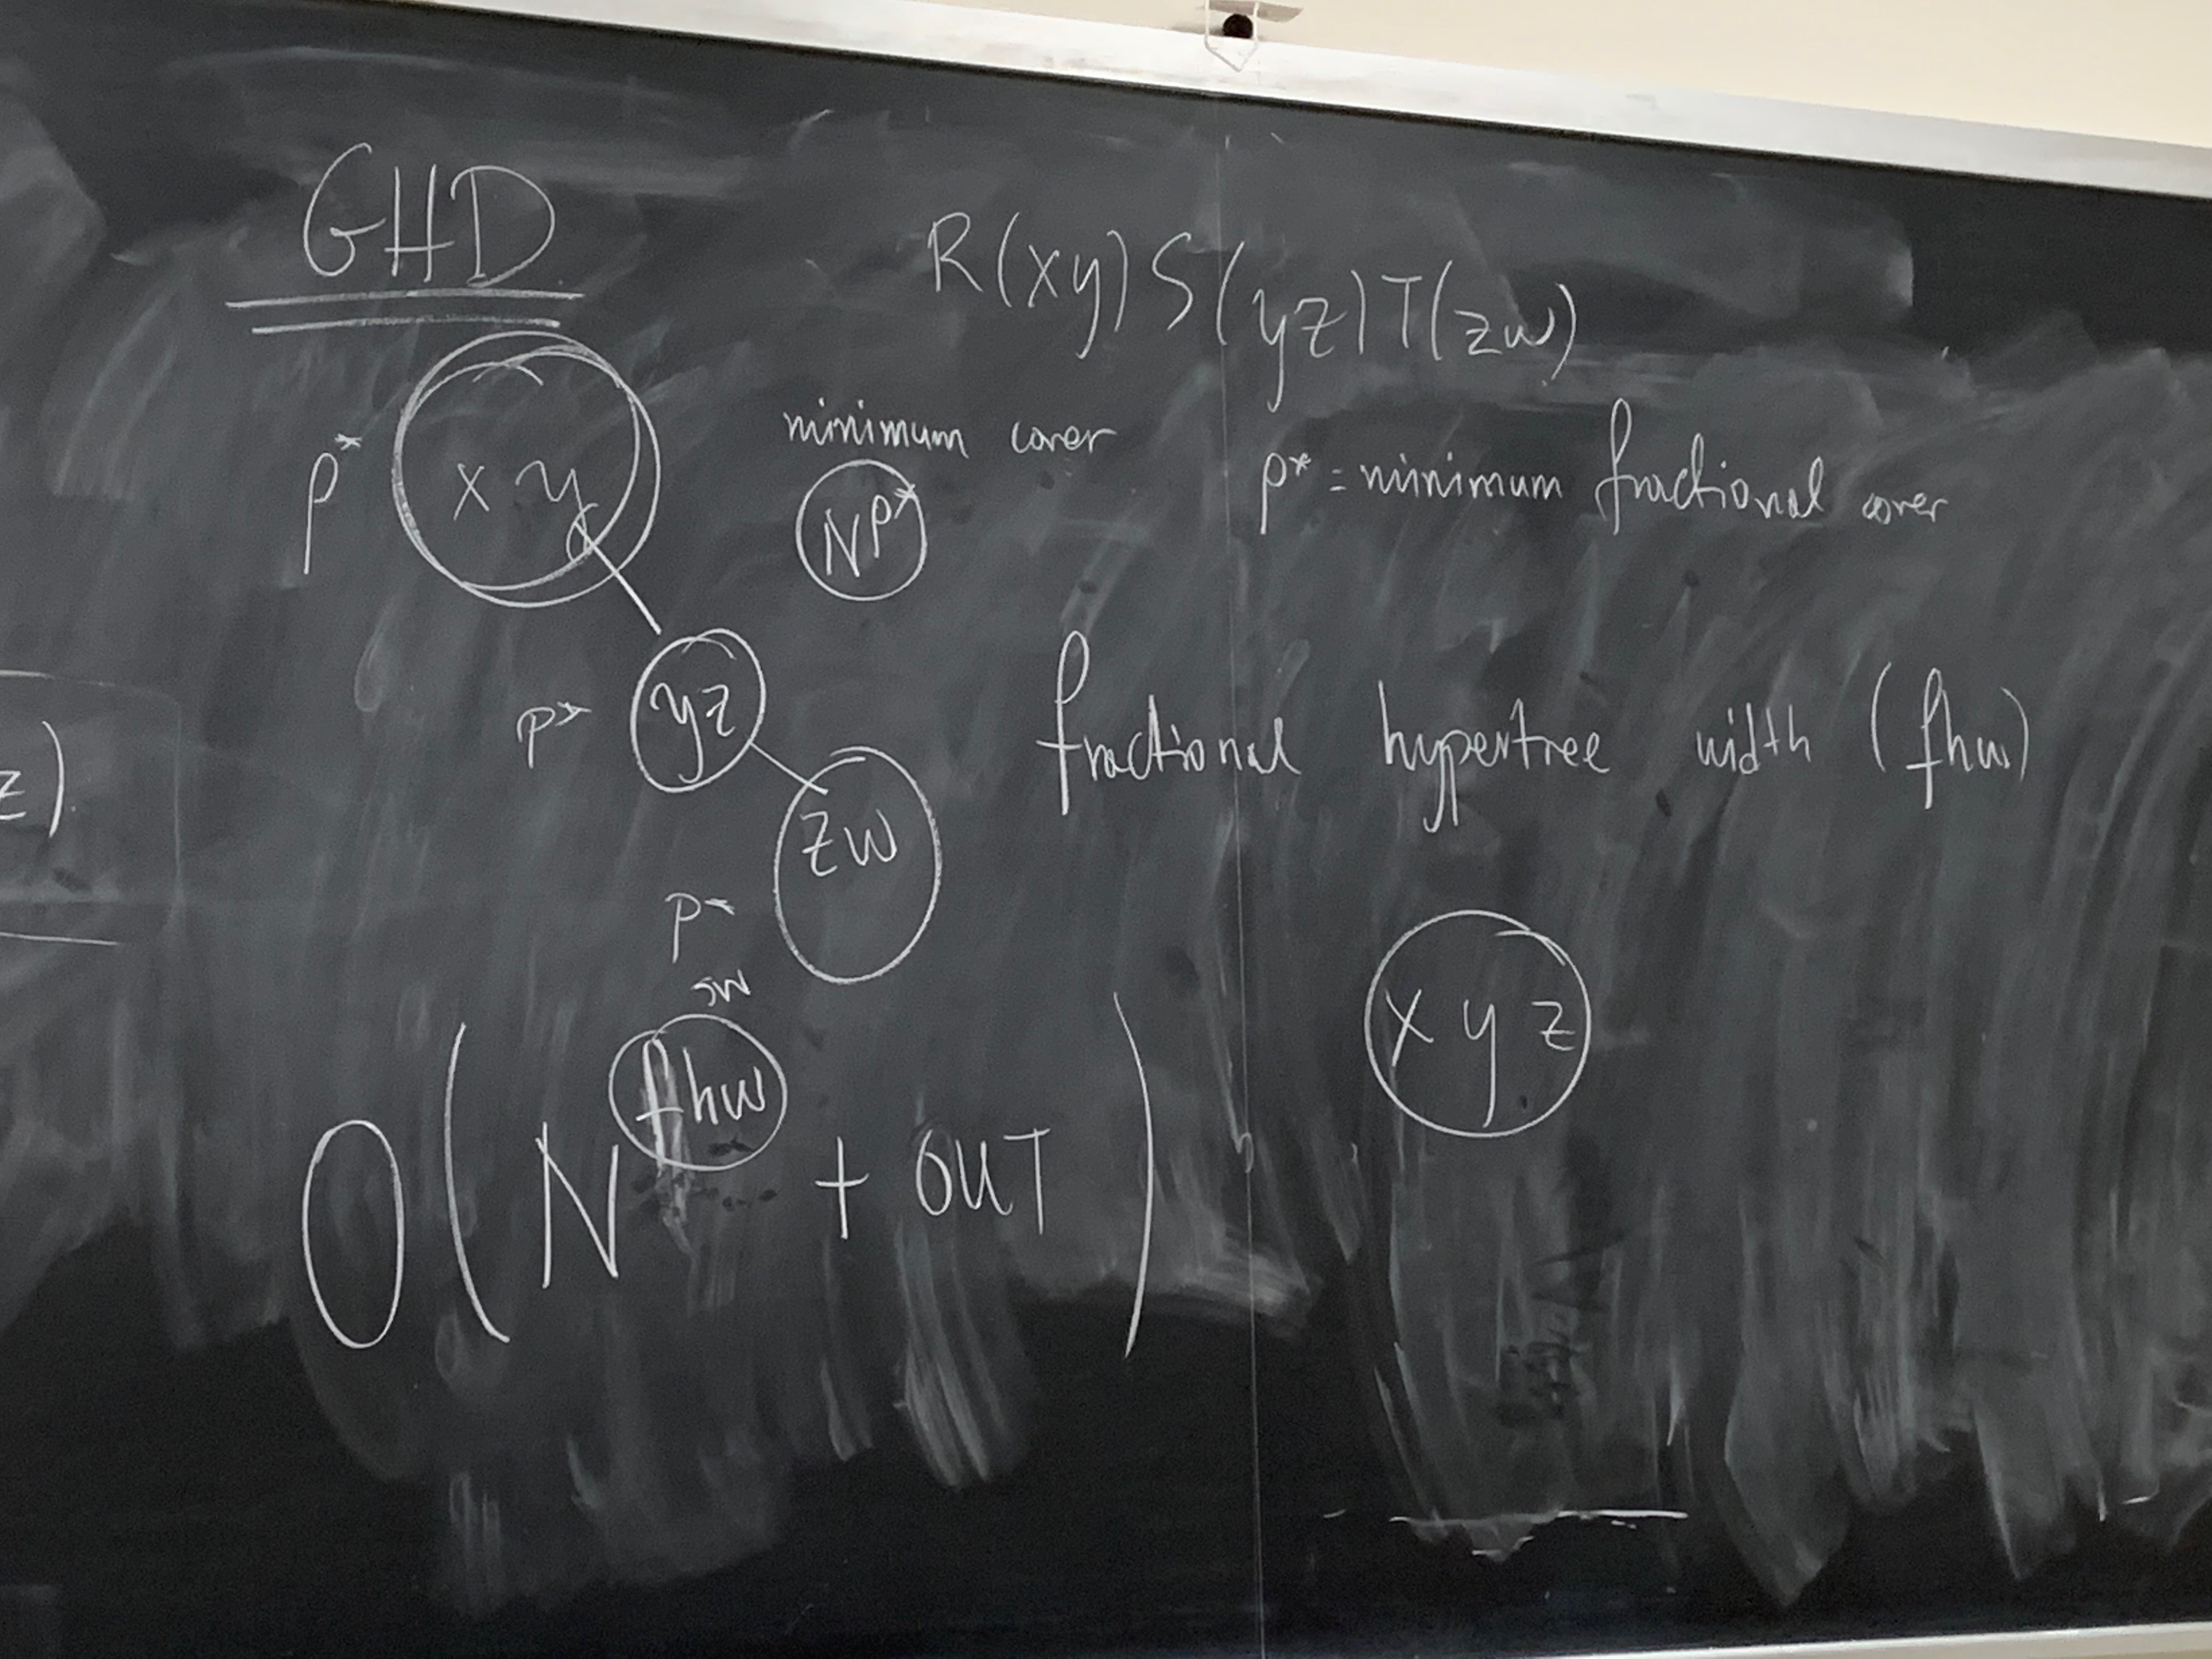 GHD
R(xy) S(yz) T(zw)
minimum cover
ρ* = minimum fractional cover
ρ*
x y
N^ρ*
ρ*
yz
fractional hypertree width (fhw)
z)
zw
ρ*
sw
x y z
O(N^fhw + OUT)